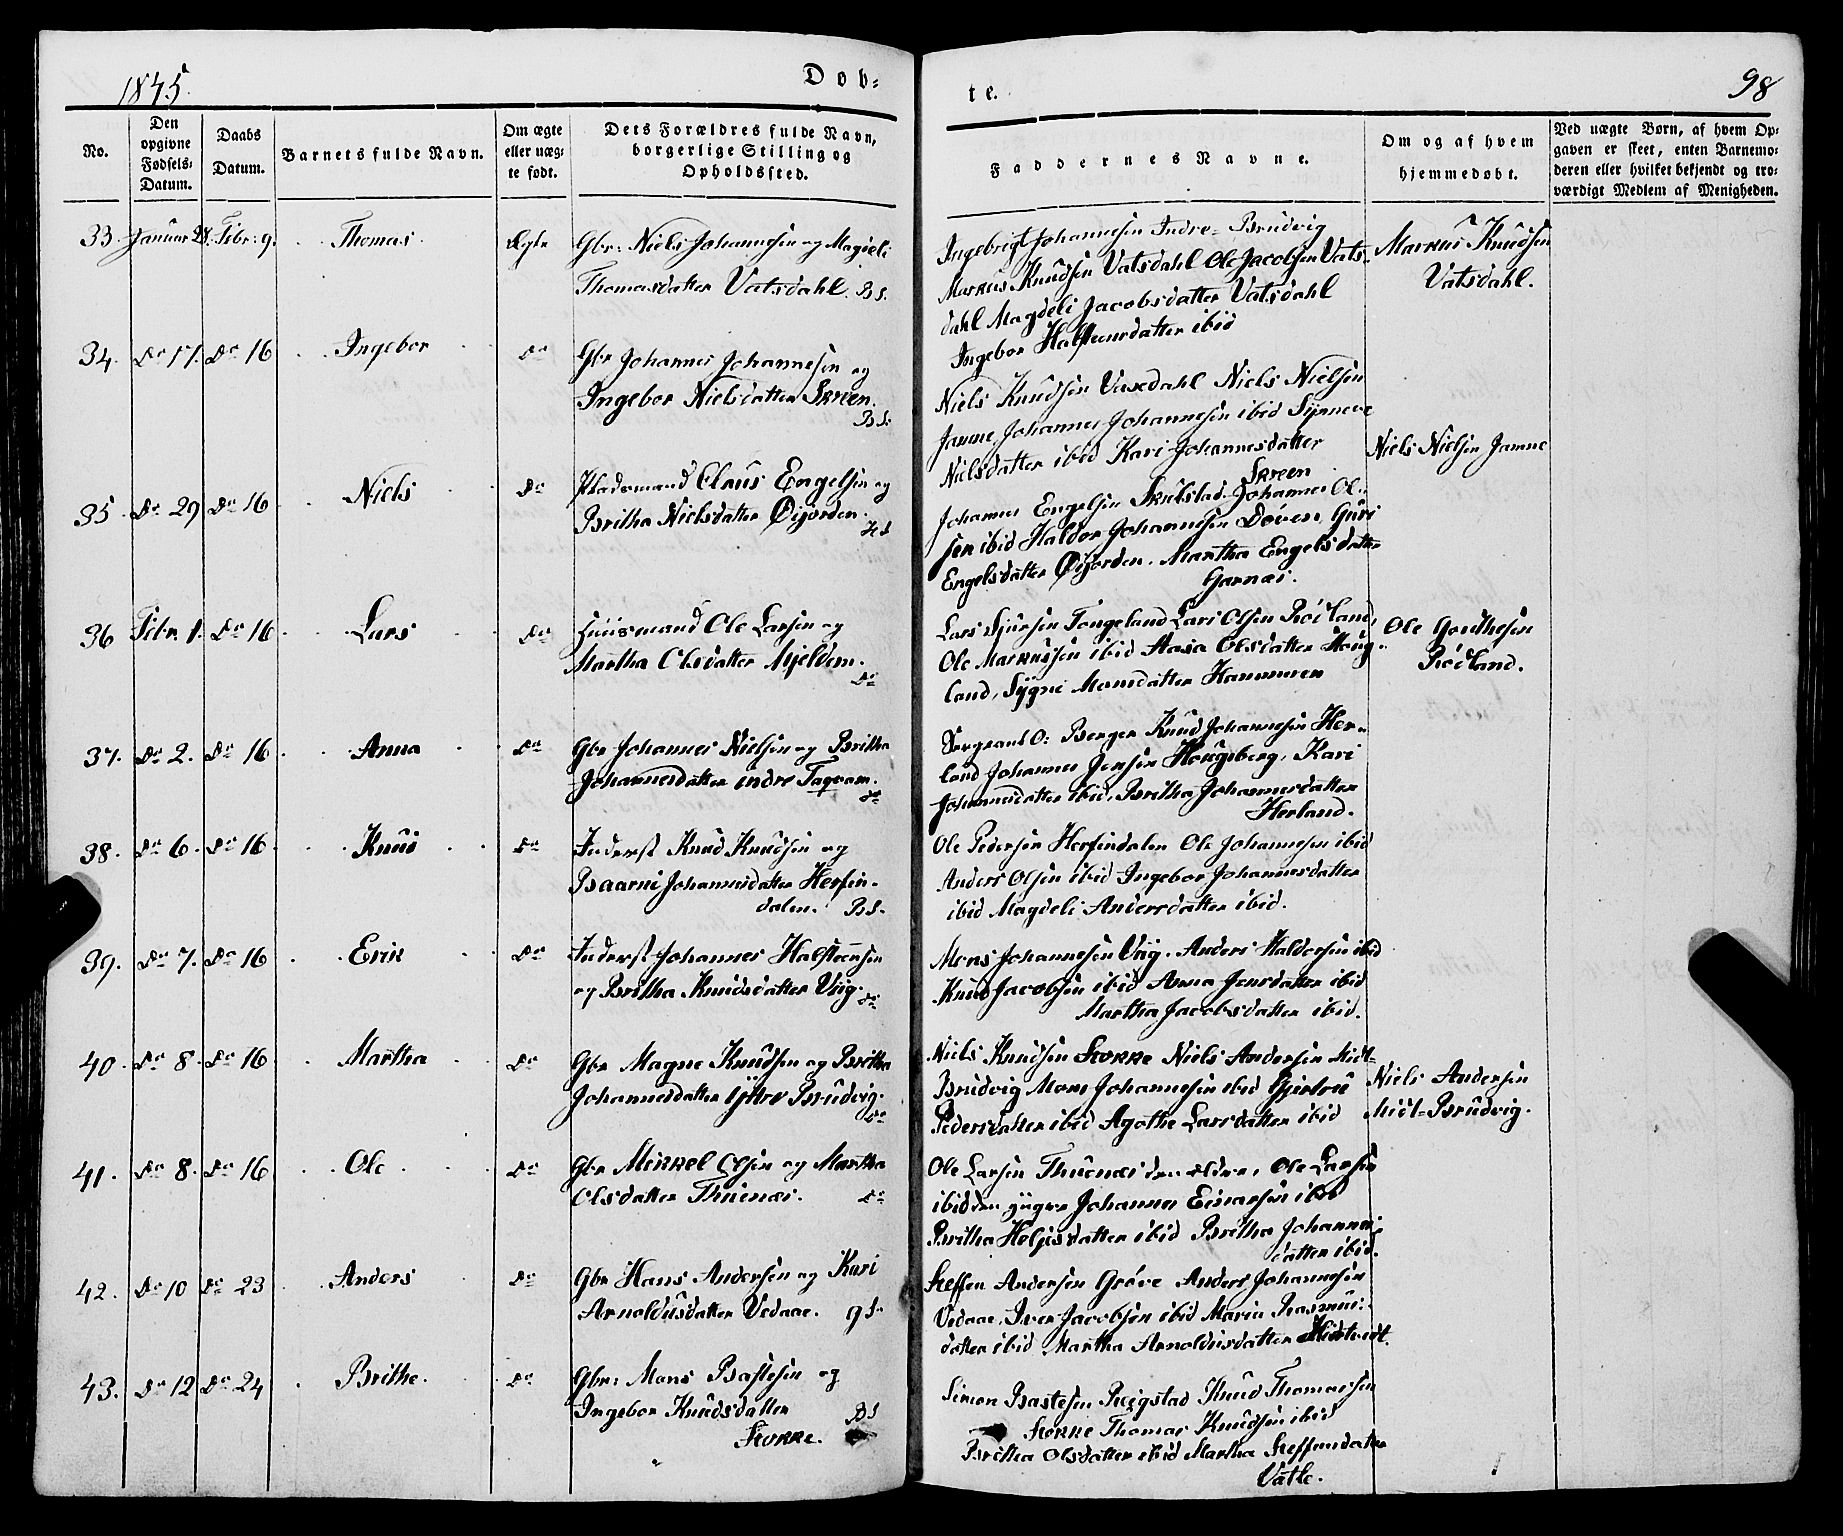 1845.
Døb-
te.
98
No.
Den opgivne Fødsels-Datum.
Daabs Datum.
Barnets fulde Navn.
Om ægte eller uæg-te født.
Dets Forældres fulde Navn, borgerlige Stilling og Opholdssted.
Faddernes Navne.
Om og af hvem hjemmedøbt.
Ved uægte Børn, af hvem Op-gaven er skeet, enten Barnemo-deren eller hvilket bekjendt og tro-værdigt Medlem af Menigheden.
33. Januar 28. Febr: 9. Thomas Egte Gbr: Niels Johannesen og Magdeli
Thomasdatter Vatsdahl. BS.
Ingebrigt Johannesen Indre-Brudvig
Markus Knudsen Vatsdahl Ole Jacobsen Vats-
dahl Magdeli Jacobsdatter Vatsdahl
Ingebor Halsteensdatter ibid
Markus Knudsen
Vatsdahl.
34. Do 17. Do 16 Ingebor Do Gbr Johannes Johannesen og
Ingebor Nielsdatter Skreen.
BS.
Niels Knudsen Vaxdahl Niels Nielsen
Jamne Johannes Johannesen ibid Synneve
Nielsdatter ibid Kari Johannesdatter
Skreen
Niels Nielsen Jamne
35. Do 29 Do 16 Niels Do Pladsmand Claus Engelsen og
Britha Nielsdatter Øijorden.
HS
Johannes Engelsen Skulstad Johannes Ol-
sen ibid Haldor Johannesen Døven Guri
Engelsdatter Øijorden. Martha Engelsdatter
Garnæs.
36 Febr. 1. Do 16 Lars Do Huusmand Ole Larsen og
Martha Olsdatter Mjeldem.
Do
Lars Sjursen Tongeland Lars Olsen Roiland,
Ole Markussen ibid Aasa Olsdatter Houg-
land, Sygni Monsdatter Hammeren
Ole Gouthesen
Roiland.
37. Do 2. Do 16 Anna Do Gbr Johannes Nielsen og Britha
Johannesdatter indre Taqvam.
Do
Sergeant O: Berger Knud Johannesen Her-
land Johannes Jensen Hougsberg, Kari
Johannesdatter ibid, Britha Johannesdatter
Herland.
38. Do 6. Do 16 Knud Do Inderst Knud Knudsen og
Baarni Johannesdatter Herfin-
dalen. BS.
Ole Pedersen Herfindalen Ole Johannesen ibid
Anders Olsen ibid Ingebor Johannesdatter
ibid Magdeli Andersdatter ibid.
39. Do 7. Do 16 Erik Do Inderst Johannes Halsteensen
og Britha Knudsdatter Viig.
Do
Mons Johannesen Viig. Anders Haldorsen ibid
Knud Jacobsen ibid Anna Jensdatter ibid
Martha Jacobsdatter ibid.
40. Do 8. Do 16 Martha Do Gbr Magne Knudsen og Britha
Johannesdatter Ijttre Brudvig.
Do
Niels Knudsen Storke Niels Andersen Midt-
Brudvig Mons Johannesen ibid Gjertrud
Pedersdatter ibid Agathe Larsdatter ibid
Niels Andersen
Midt-Brudvig.
41. Do 8. Do 16 Ole Do Gbr Mikkel Olsen og Martha
Olsdatter Thuenæs. Do
Ole Larsen Thuenæs den ældre, Ole Larsen
ibid den yngre Johannes Einarsen ibid
Britha Helgesdatter ibid Britha Johannes-
datter ibid.
42. Do 10 Do 23 Anders Do Gbr Hans Andersen og Kari
Arnoldusdatter Vedaae. GS.
Steffen Andersen Grøve Anders Johannesen
Vedaae, Iver Jacobsen ibid Maria Rasmus-
datter ibid Martha Arnoldusdatter
43. Do 12 Do 24 Brithe. Do Gbr: Mons Bastesen og
Ingebor Knudsdatter BS
Storke.
Simon Bastesen Reigstad Knud Thomassen
Storke Thomas Knudsen ibid
Britha Olsdatter ibid Martha Steffensdatter
Vatle.